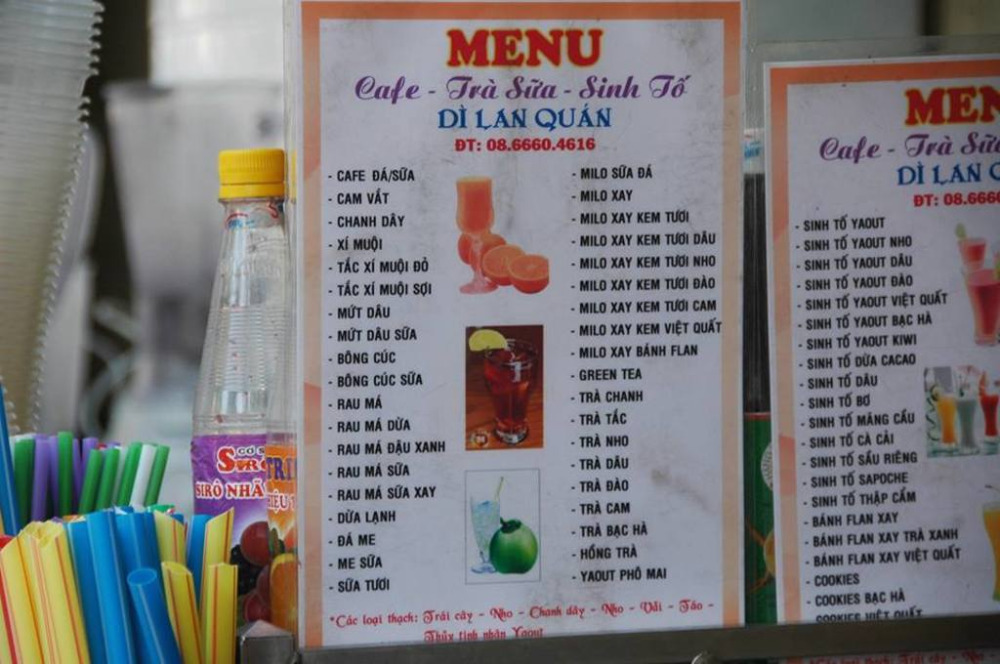 MENU
Cafe - Trà Sữa - Sinh Tố
DÌ LAN QUÁN
ĐT: 08.6660.4616
- CAFE ĐÁ/SỮA
- CAM VẮT
- CHANH DÂY
- XÍ MUỘI
- TẮC XÍ MUỘI ĐỎ
- TẮC XÍ MUỘI SỢI
- MỨT DÂU
- MỨT DÂU SỮA
- BÔNG CÚC
- BÔNG CÚC SỮA
- RAU MÁ
- RAU MÁ DỪA
- RAU MÁ ĐẬU XANH
- RAU MÁ SỮA
- RAU MÁ SỮA XAY
- DỪA LẠNH
- ĐÁ ME
- ME SỮA
- SỮA TƯƠI
- MILO SỮA ĐÁ
- MILO XAY
- MILO XAY KEM TƯƠI
- MILO XAY KEM TƯƠI DÂU
- MILO XAY KEM TƯƠI NHO
- MILO XAY KEM TƯƠI ĐÀO
- MILO XAY KEM TƯƠI CAM
- MILO XAY KEM VIỆT QUẤT
- MILO XAY BÁNH FLAN
- GREEN TEA
- TRÀ CHANH
- TRÀ TẮC
- TRÀ NHO
- TRÀ DÂU
- TRÀ ĐÀO
- TRÀ CAM
- TRÀ BẠC HÀ
- HỒNG TRÀ
- YAOUT PHÔ MAI
*Các loại thạch: Trái cây - Nho - Chanh dây - Nho - Vải - Táo -
Thủy tinh nhân Yaout
MEN
Cafe - Trà Sữa
DÌ LAN Q
ĐT: 08.666
- SINH TỐ YAOUT
- SINH TỐ YAOUT NHO
- SINH TỐ YAOUT DÂU
- SINH TỐ YAOUT ĐÀO
- SINH TỐ YAOUT VIỆT QUẤT
- SINH TỐ YAOUT BẠC HÀ
- SINH TỐ YAOUT KIWI
- SINH TỐ DỪA CACAO
- SINH TỐ DÂU
- SINH TỐ BƠ
- SINH TỐ MÃNG CẦU
- SINH TỐ CÀ CẢI
- SINH TỐ SẦU RIÊNG
- SINH TỐ SAPOCHE
- SINH TỐ THẬP CẨM
- BÁNH FLAN XAY
- BÁNH FLAN XAY TRÀ XANH
- BÁNH FLAN XAY VIỆT QUẤT
- COOKIES
- COOKIES BẠC HÀ
COOKIES VIỆT QUẤT
SIRÔ NHÃ
TRI